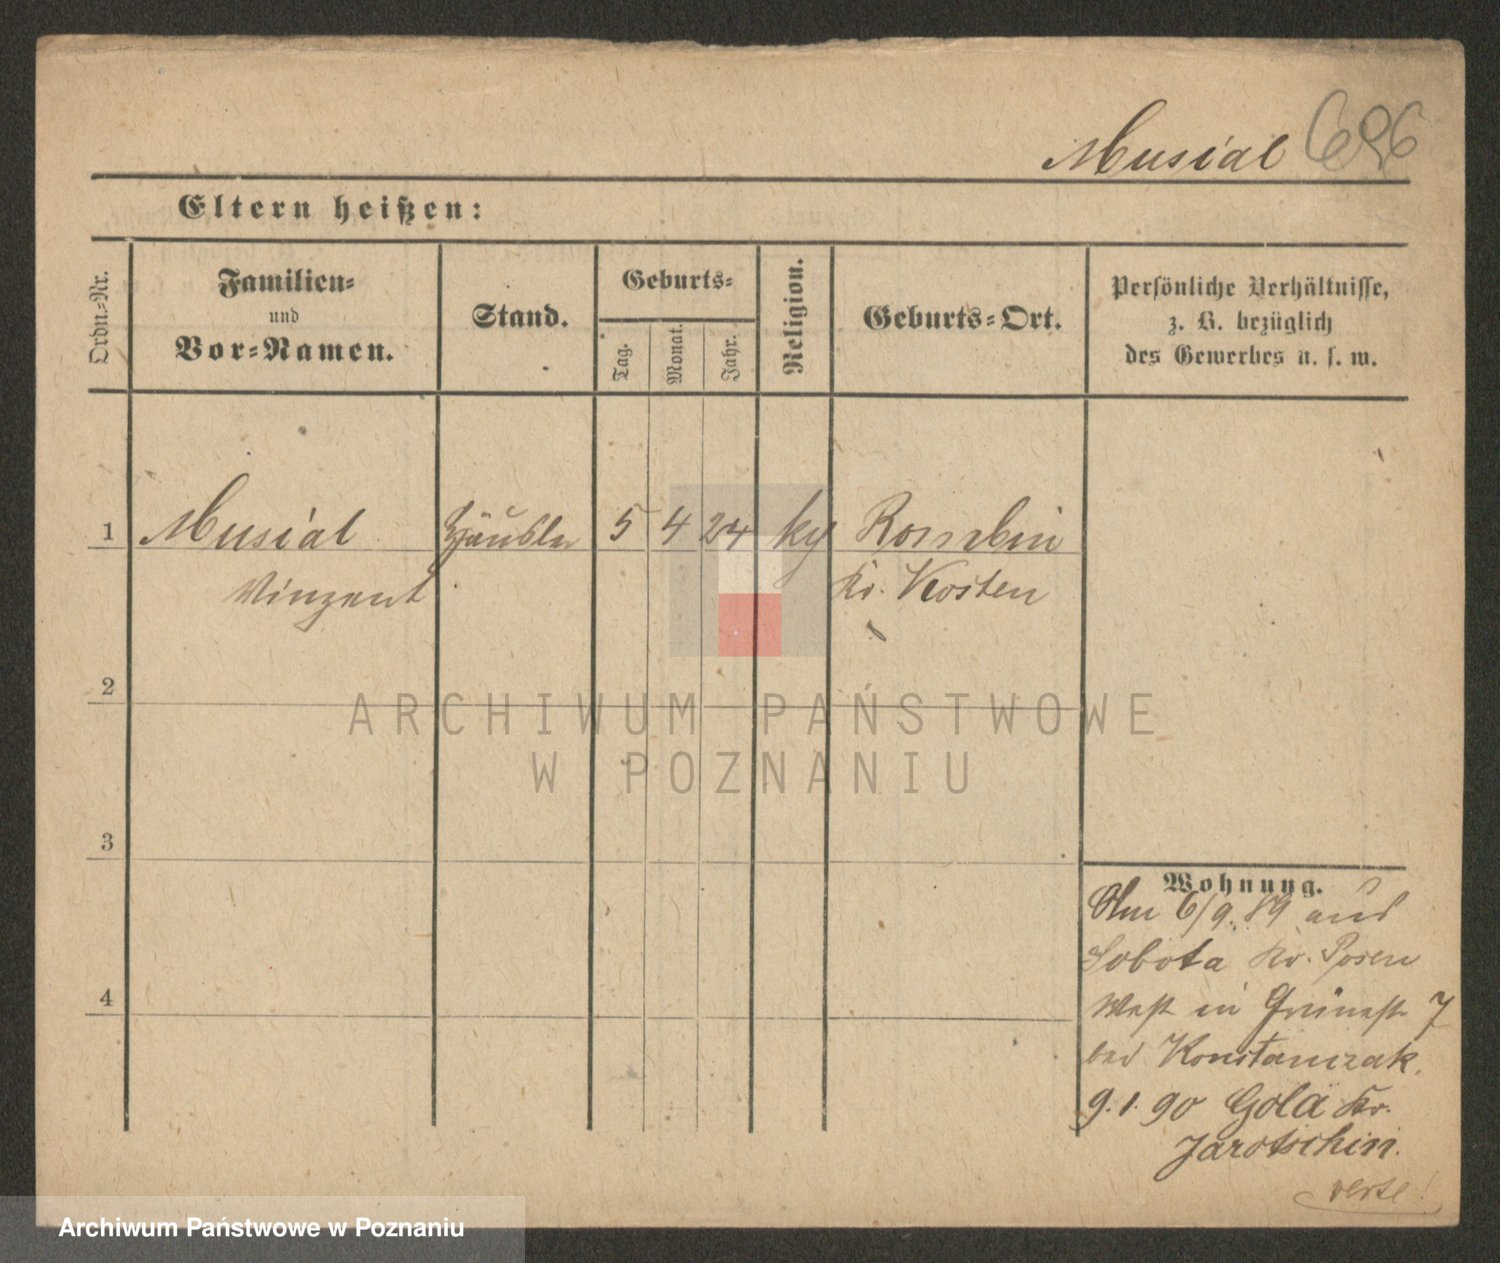 Musial 686
Eltern heißen:
Ordn.-Nr.
Familien-
und
Vor-Namen.
Stand.
Geburts-
Tag.
Monat.
Jahr.
Religion.
Geburts-Ort.
Persönliche Verhältnisse,
z. B. bezüglich
des Gewerbes u. s. w.
1 Musial 5 4 24
Vinzent Kr. Kosten
2
3
4
Wohnung.
Am 6/9. 89 aus
Sobota Kr. Posen
West in Grünestr 7
bei Konstanczak.
9.1.90 Gola Kr.
Jarotschin.
verte!
ARCHIWUM PAŃSTWOWE
W POZNANIU
Archiwum Państwowe w Poznaniu